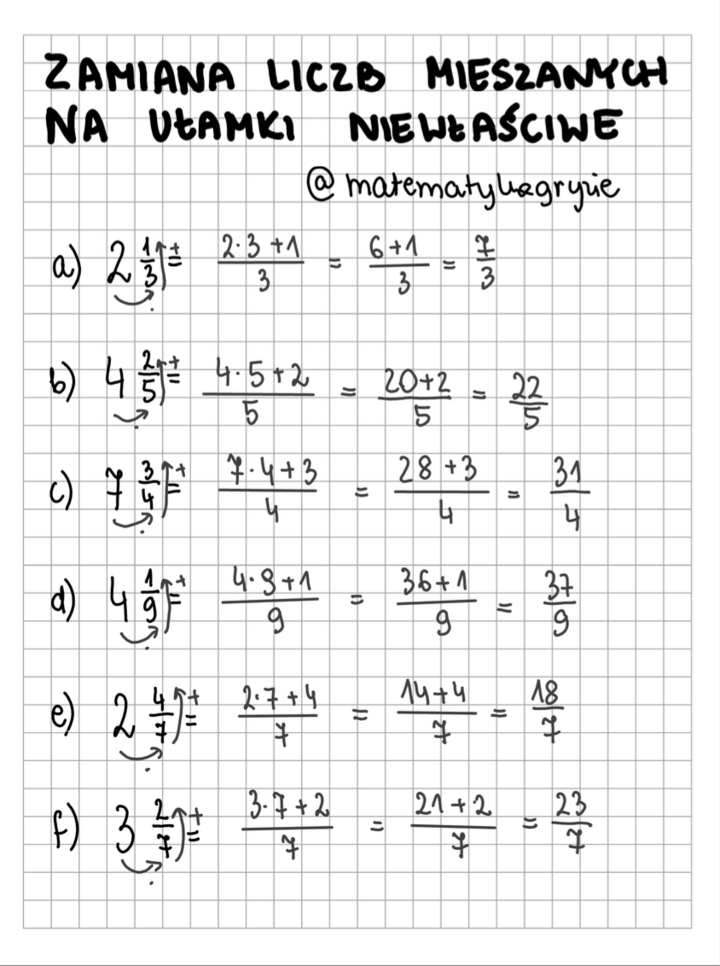 ZAMIANA LICZB MIESZANYCH
NA UŁAMKI NIEWŁAŚCIWE
@matematykagryzie
a) 2 1/3 = (2·3+1)/3 = (6+1)/3 = 7/3
b) 4 2/5 = (4·5+2)/5 = (20+2)/5 = 22/5
c) 7 3/4 = (7·4+3)/4 = (28+3)/4 = 31/4
d) 4 1/9 = (4·9+1)/9 = (36+1)/9 = 37/9
e) 2 4/7 = (2·7+4)/7 = (14+4)/7 = 18/7
f) 3 2/7 = (3·7+2)/7 = (21+2)/7 = 23/7